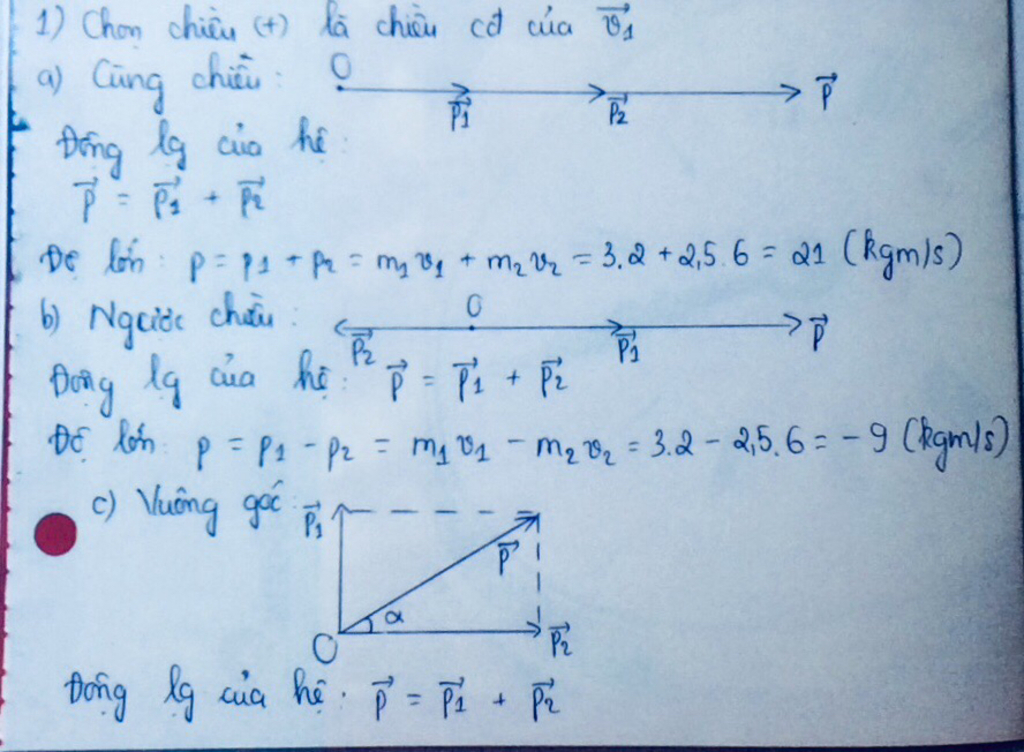 1) Chọn chiều (+) là chiều cđ của v⃗₁
a) Cùng chiều: O p⃗₁ p⃗₂ p⃗
Động lg của hệ:
p⃗ = p⃗₁ + p⃗₂
Độ lớn: p = p₁ + p₂ = m₁v₁ + m₂v₂ = 3.2 + 2,5.6 = 21 (kgm/s)
b) Ngược chiều: p⃗₂ O p⃗₁ p⃗
Động lg của hệ: p⃗ = p⃗₁ + p⃗₂
Độ lớn: p = p₁ - p₂ = m₁v₁ - m₂v₂ = 3.2 - 2,5.6 = -9 (kgm/s)
c) Vuông góc: p⃗₁
p⃗
α
O p⃗₂
Động lg của hệ: p⃗ = p⃗₁ + p⃗₂